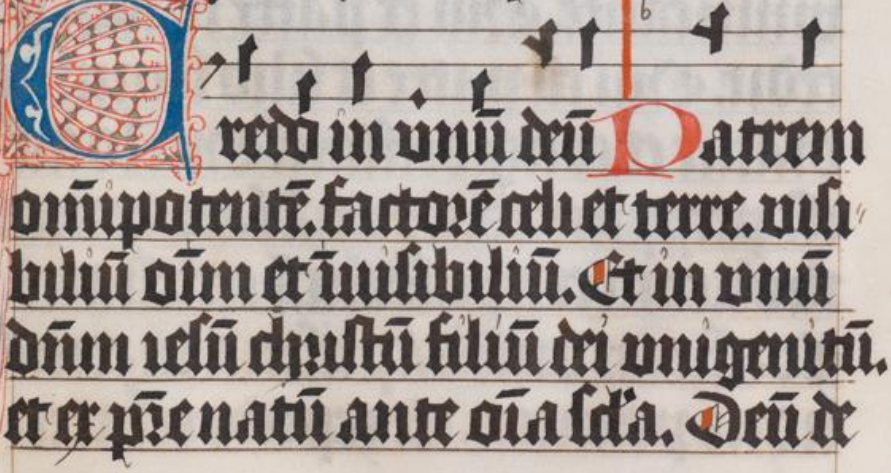 Credo in vnū deū Patrem
om̄ipotentē. factorē celi et terre. visi
biliū oīm et īuisibiliū. Et in vnū
dn̄m iesū christū filiū dei vnigenitū.
et ex pr̄e natū ante oīa scl'a. Deū de